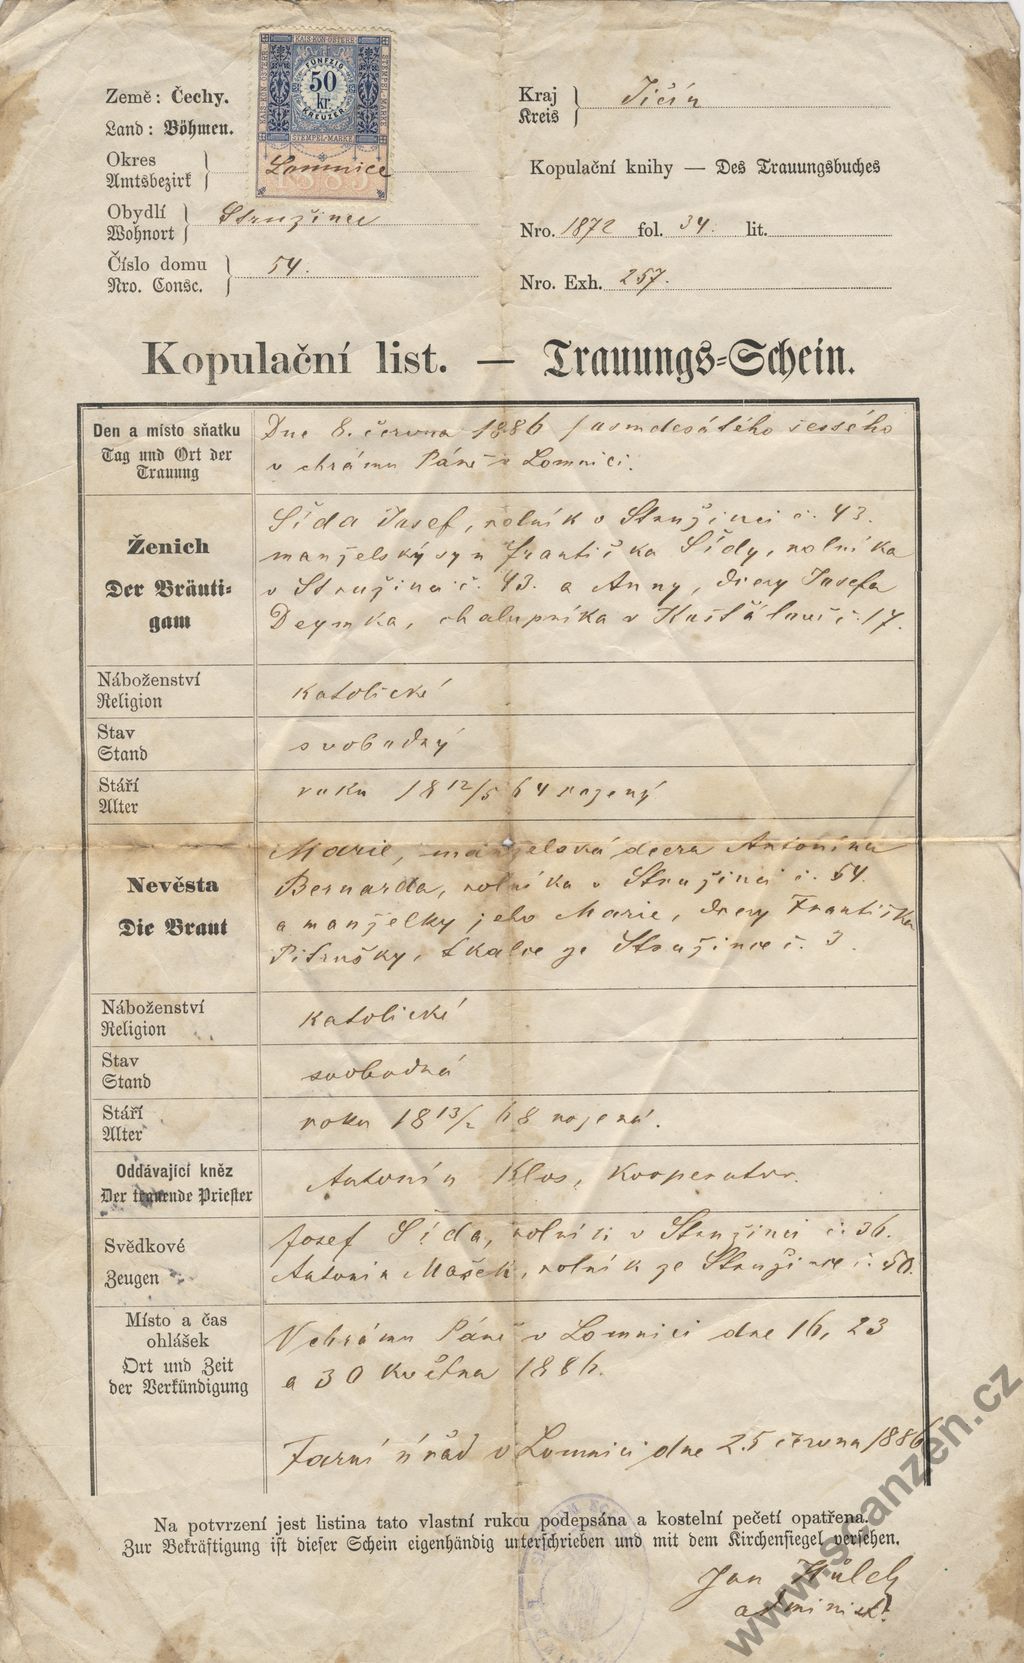 Země: Čechy.
Land: Böhmen.
Okres
Amtsbezirk
Lomnice
Obydlí
Wohnort
Stružinec
Číslo domu
Nro. Consc.
54.
KAIS.KÖN.ÖSTERR.
FÜNFZIG
50
kr.
KREUZER
STEMPEL-MARKE
1885
Kraj
Kreis
Jičín
Kopulační knihy — Des Trauungsbuches
Nro. 1872 fol. 34. lit.
Nro. Exh. 257.
Kopulační list. — Trauungs-Schein.
Den a místo sňatku
Tag und Ort der
Trauung
Dne 8. června 1886 / osmdesátého šestého
v chrámu Páně v Lomnici.
Ženich
Der Bräuti-
gam
Šída Josef, rolník v Stružinci č. 43.
manželský syn Františka Šídy, rolníka
v Stružinci č. 43. a Anny, dcery Josefa
Deymka, chalupníka v Košťálově č. 17.
Náboženství
Religion
katolické
Stav
Stand
svobodný
Stáří
Alter
roku 18 12/5 64 rozený
Nevěsta
Die Braut
Marie, manželská dcera Antonína
Bernarda, rolníka v Stružinci č. 54.
a manželky jeho Marie, dcery Františka
Pitrušky, tkalce ze Stružince č. 3.
Náboženství
Religion
katolické
Stav
Stand
svobodná
Stáří
Alter
roku 18 13/2 68 rozená.
Oddávající kněz
Der trauende Priester
Antonín Klos, kooperator.
Svědkové
Zeugen
Josef Šída, rolník v Stružinci č. 36.
Antonín Mašek, rolník ze Stružince č. 50.
Místo a čas
ohlášek
Ort und Zeit
der Verkündigung
V chrámu Páně v Lomnici dne 16, 23
a 30 května 1886.
Farní úřad v Lomnici dne 25 června 1886
Na potvrzení jest listina tato vlastní rukou podepsána a kostelní pečetí opatřena.
Zur Bekräftigung ist dieser Schein eigenhändig unterschrieben und mit dem Kirchensiegel versehen.
Jan
administ.
www.scanzen.cz